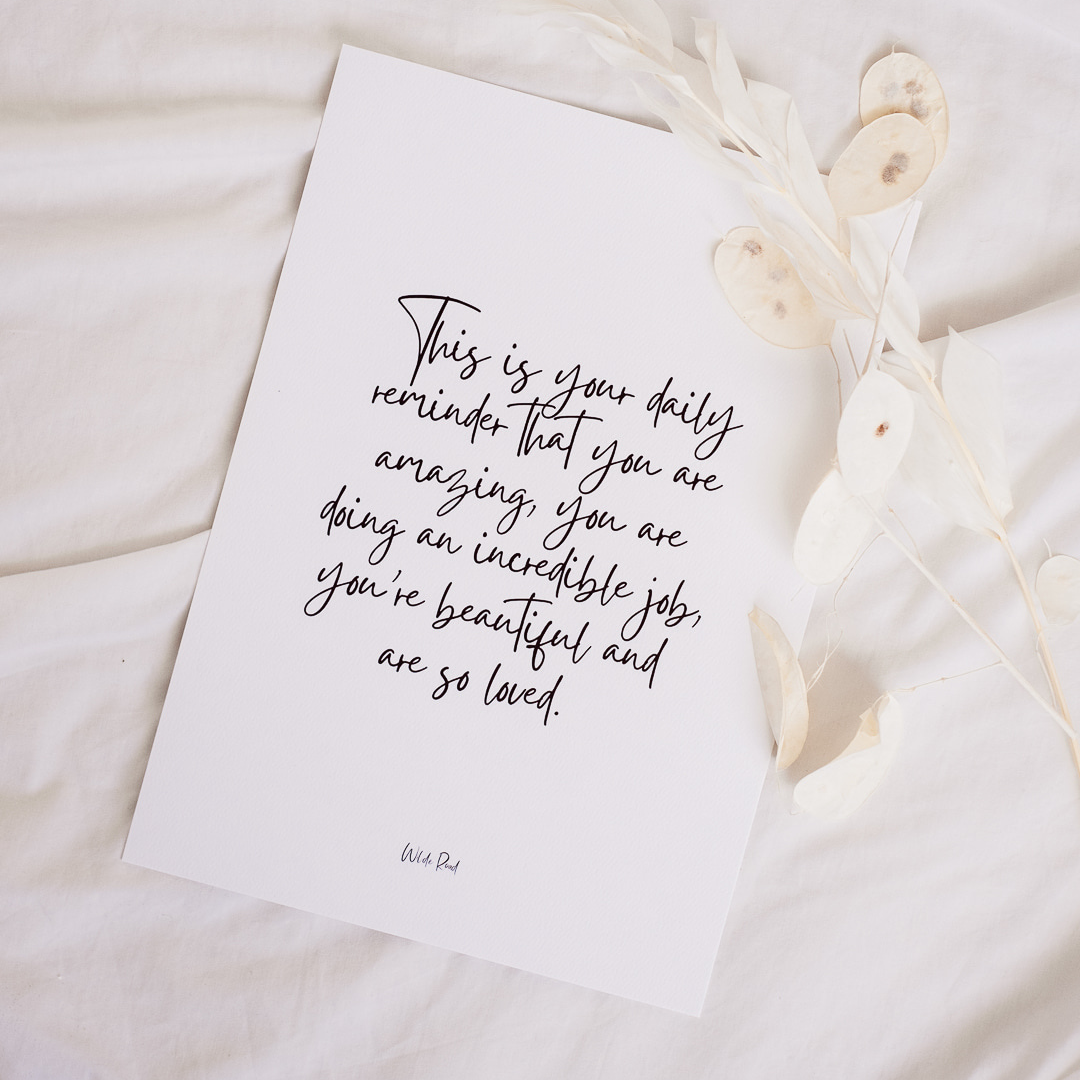 This is your daily
reminder that you are
amazing, you are
doing an incredible job,
you're beautiful and
are so loved.
Wilde Road